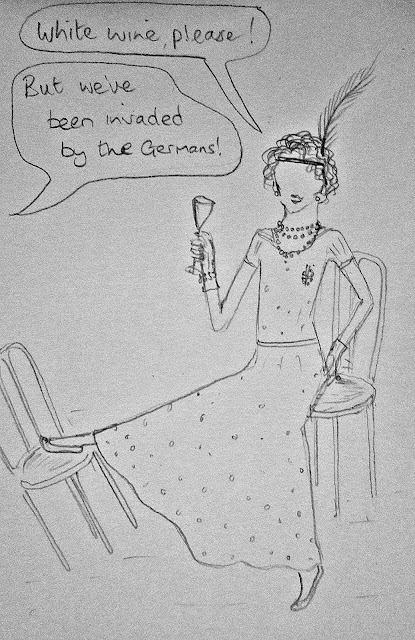 White wine, please!
But we've
been invaded
by the Germans!